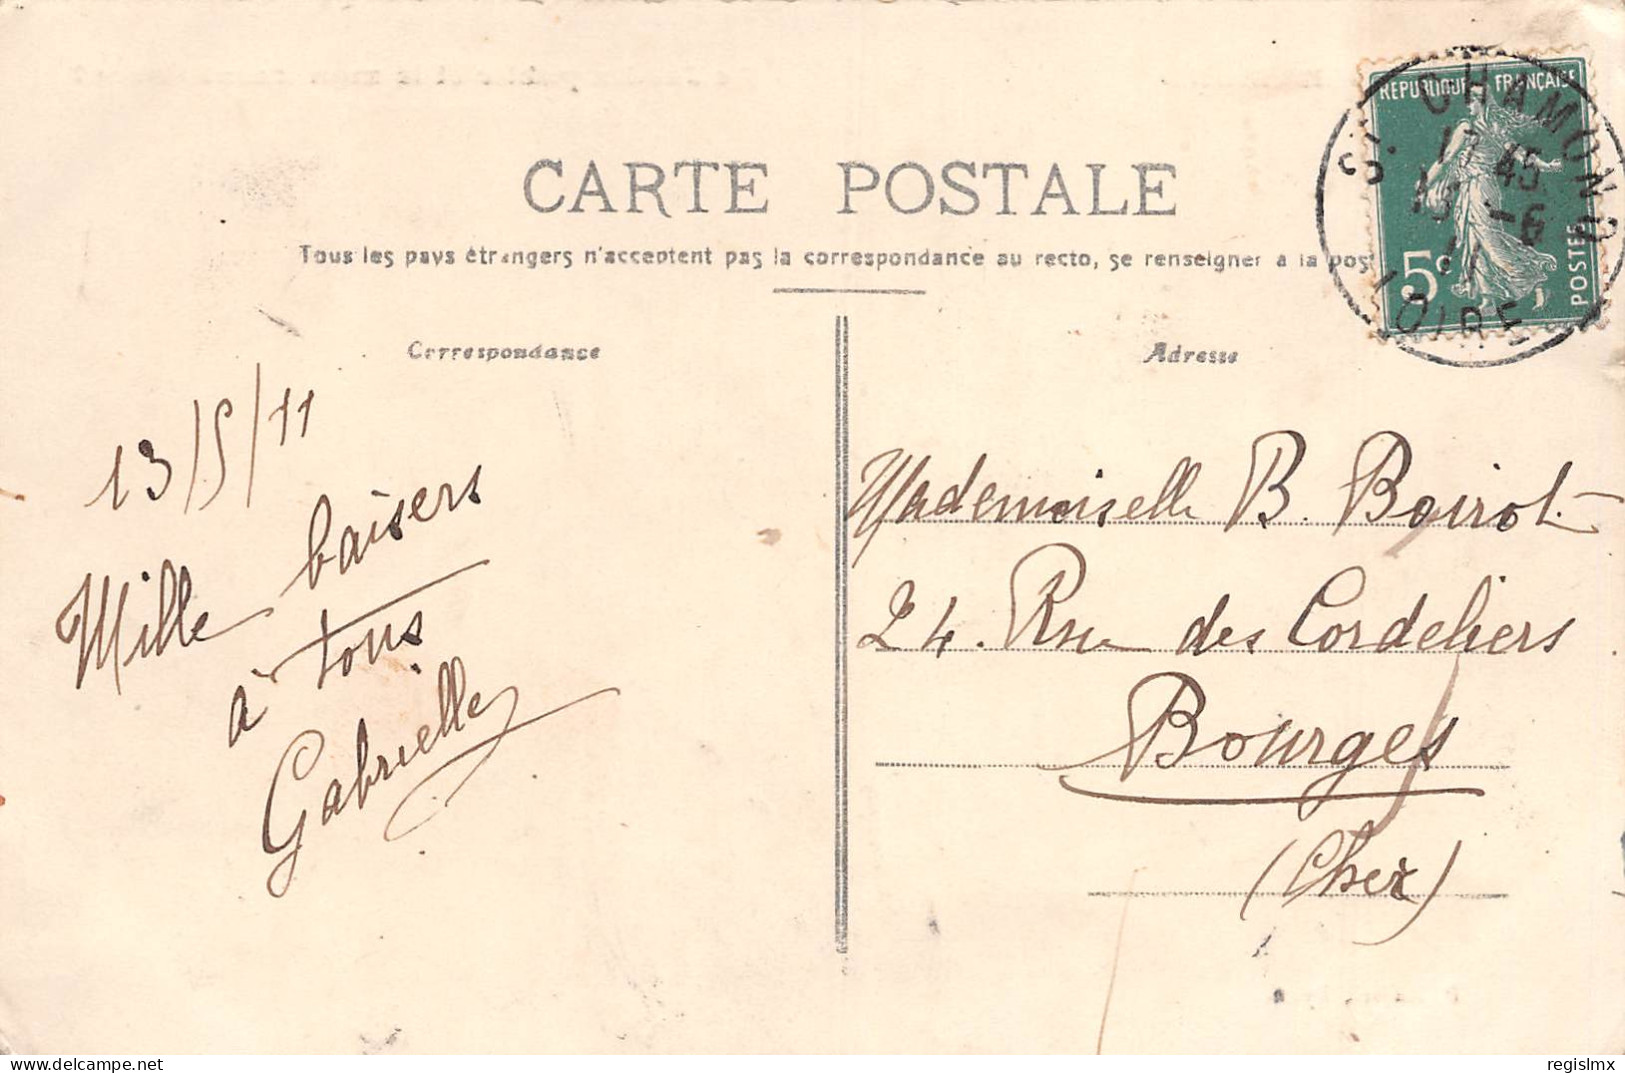 CARTE POSTALE
Tous les pays étrangers n'acceptent pas la correspondance au recto, se renseigner à la pos
Correspondance
Adresse
RÉPUBLIQUE FRANÇAISE
5c
POSTES
ST. CHAMOND
45
13 -6
11
LOIRE
13/5/11
Mille baisers
à tous
Gabrielle
Mademoiselle B. Boirot
24. Rue des Cordeliers
Bourges
(Cher)
www.delcampe.net
regislmx